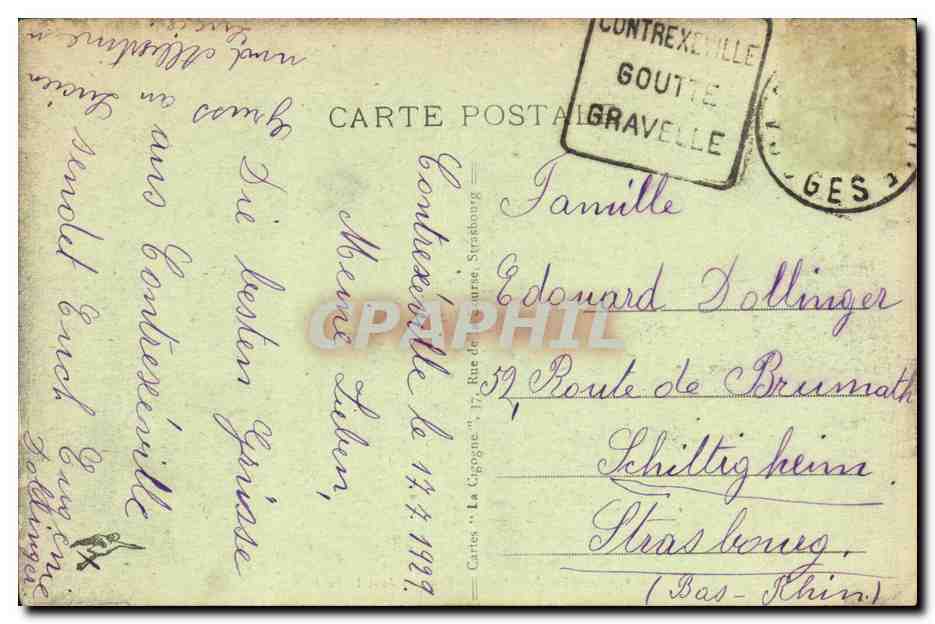 CARTE POSTALE
CONTREXEVILLE
GOUTTE
GRAVELLE
GES
Contrexéville le 17.7.1929.
Meine Lieben,
Die besten Grüsse
aus Contrexéville
sendet Euch Eugenie
Dollinger
Gruss an Lucien
und
Cartes " La Cigogne ", 17, Rue de la Course, Strasbourg
Famille
Edouard Dollinger
52, Route de Brumath
Schiltigheim
Strasbourg.
(Bas-Rhin.)
CPAPHIL